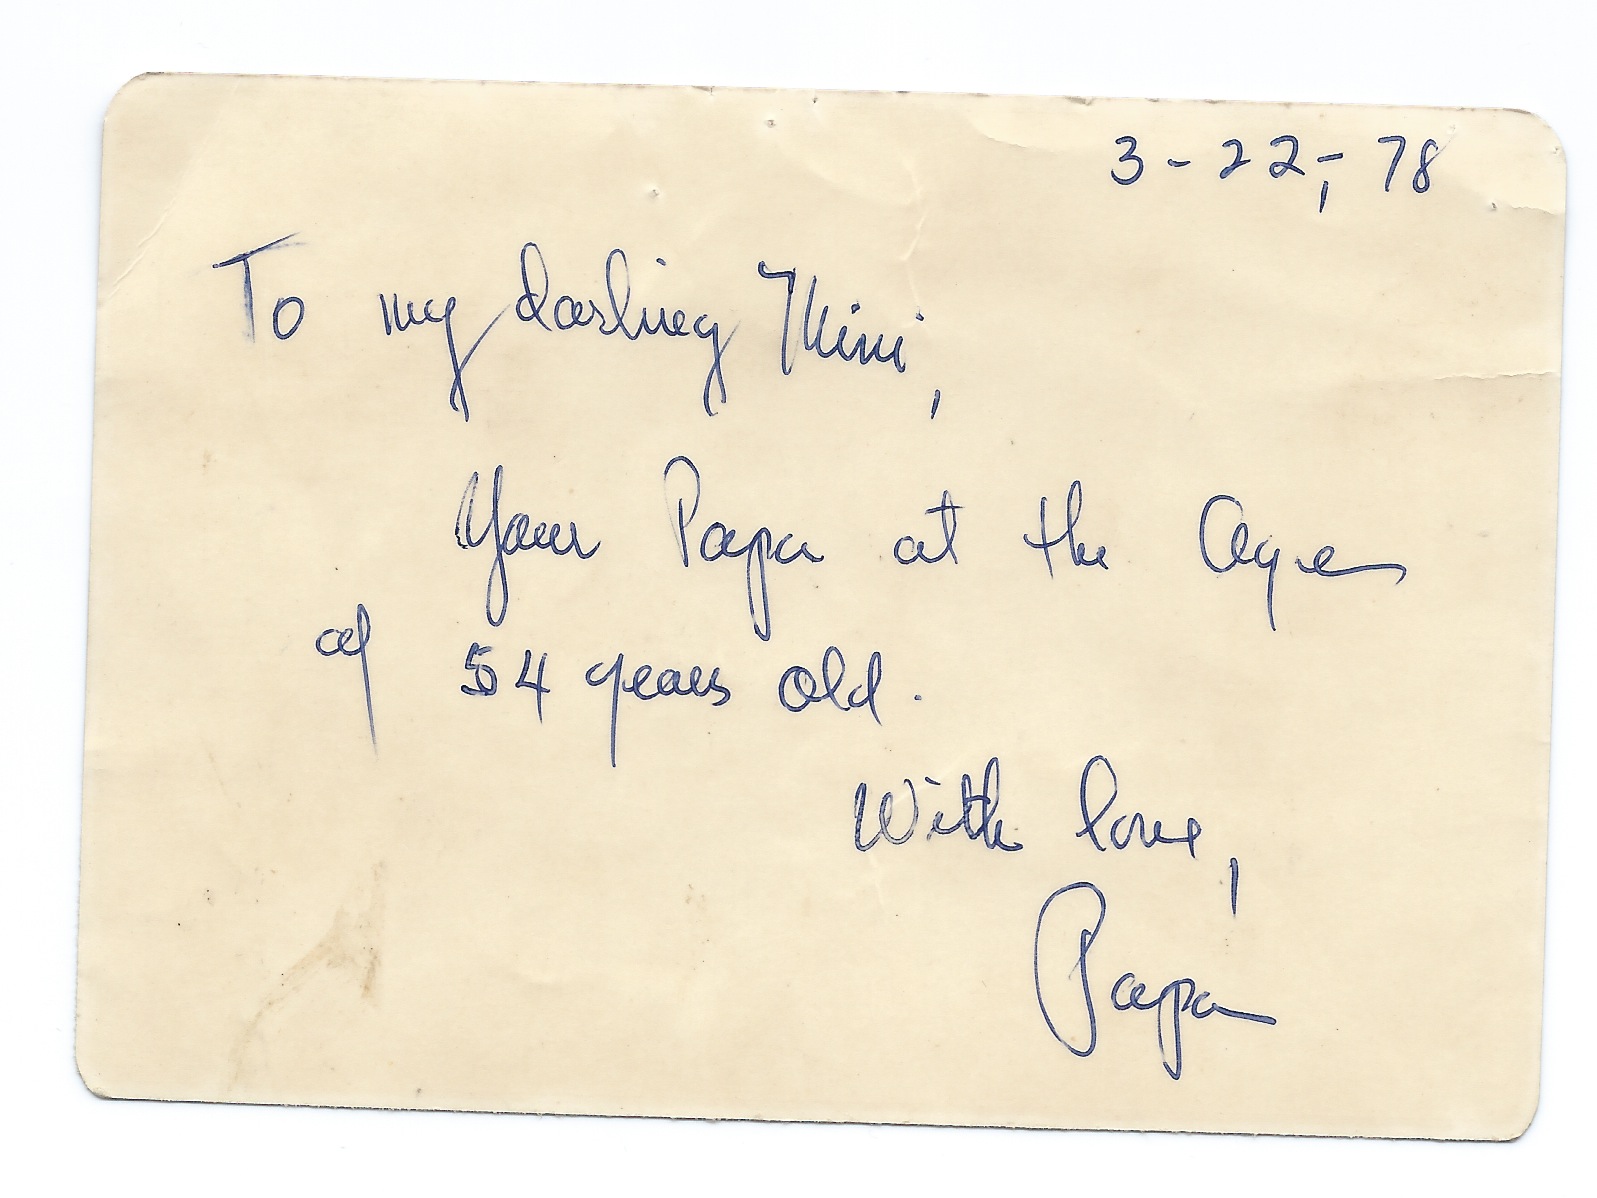 3-22,-78
To my darling Mimi,
Your Papa at the age
of 54 years old.
With love,
Papa